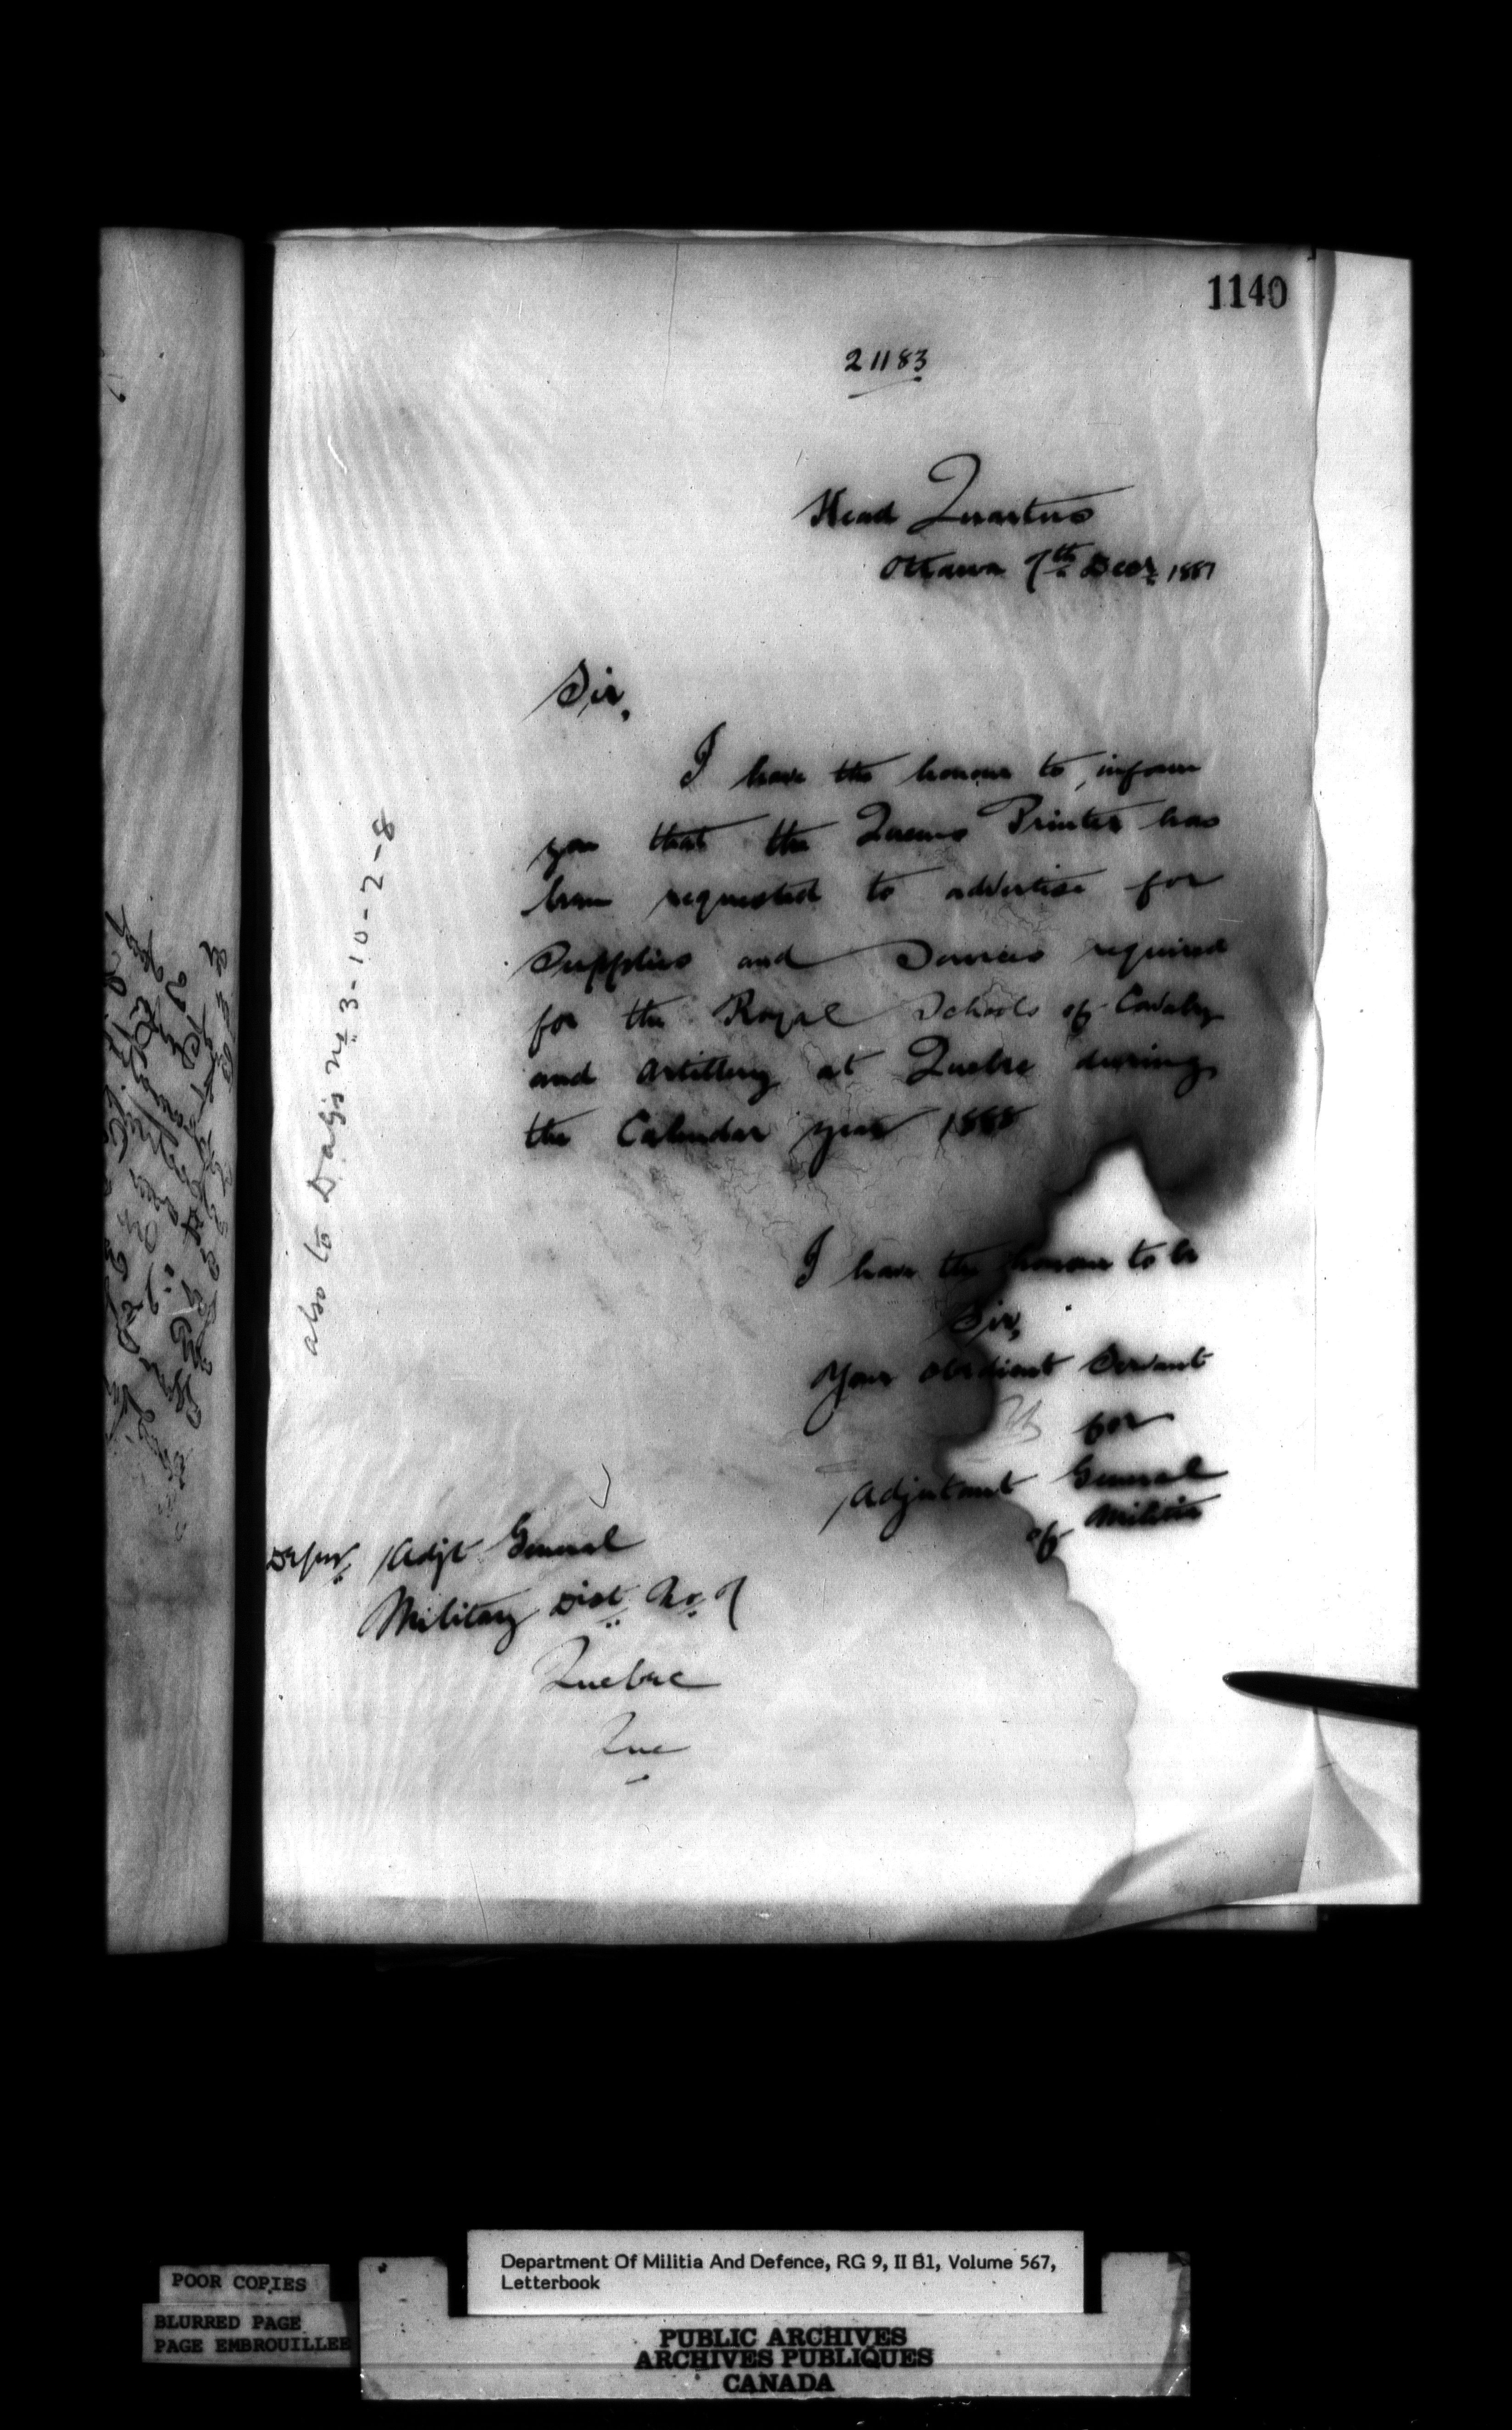 1140
21183
Head Quarters
Ottawa 7th Decr. 1887
Sir,
I have the honour to inform
you that the Queens Printer has
been requested to advertise for
Supplies and Services required
for the Royal Schools of Cavalry
and Artillery at Quebec during
the Calendar year 1888
I have the honour to be
Sir,
Your obedient Servant
for
Adjutant General
of Militia
Depy. Adjt General
Military Dist. No. 7
Quebec
Que
also to D.A.G's No 3-10-2-8
Department Of Militia And Defence, RG 9, II B1, Volume 567,
Letterbook
POOR COPIES
BLURRED PAGE
PAGE EMBROUILLEE
PUBLIC ARCHIVES
ARCHIVES PUBLIQUES
CANADA